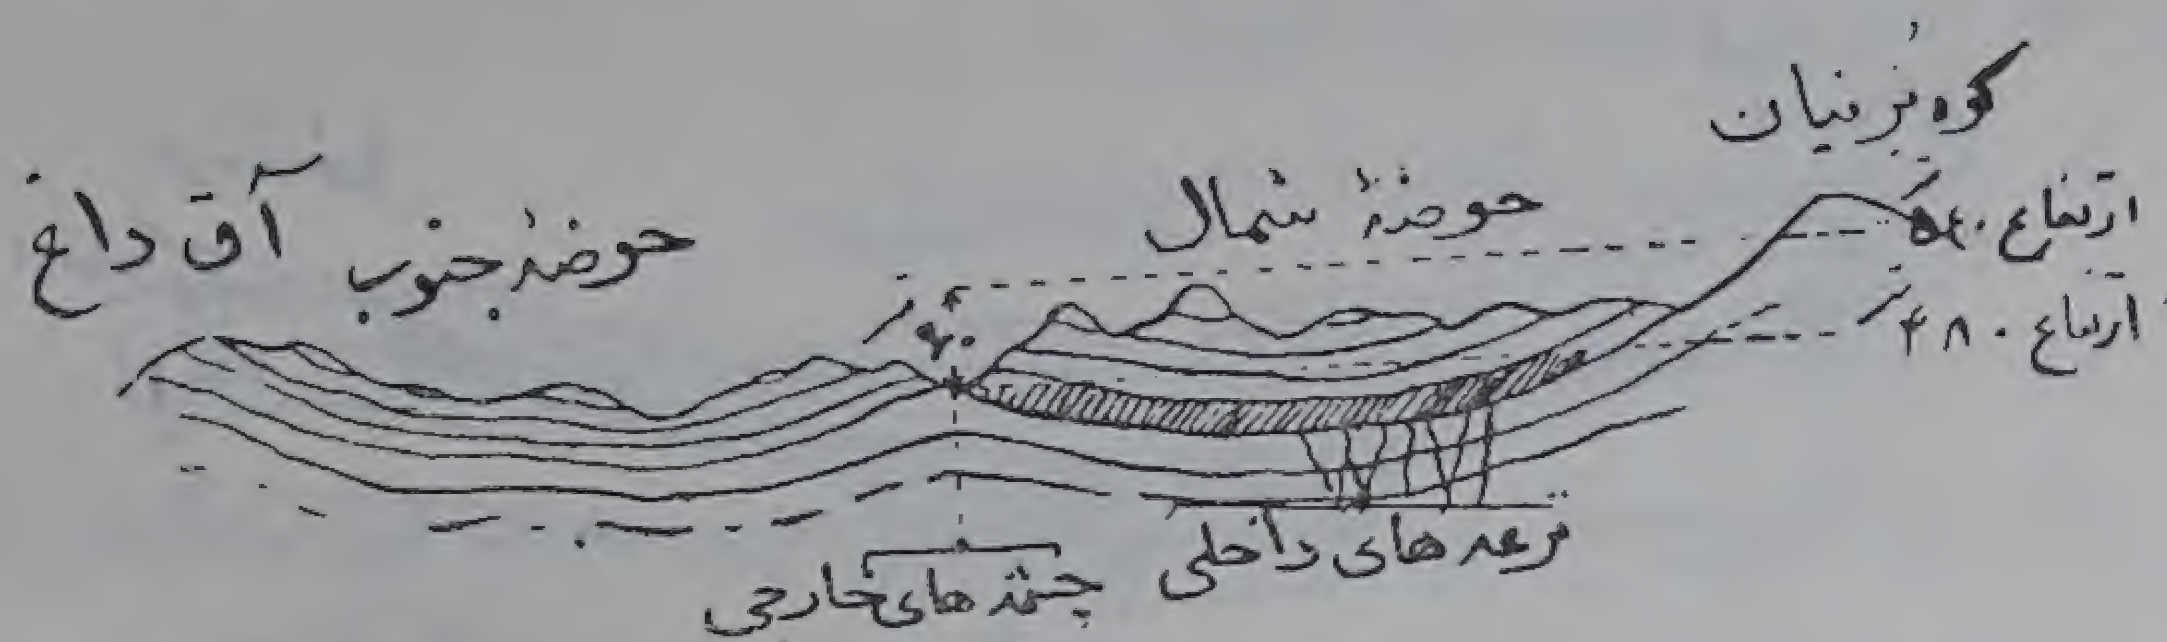 کوه نرنیان
ارتفاع ۵۴۰
ارتفاع ۴۸۰
حوضهٔ شمال
حوضهٔ جنوب
آق داغ
ترعه های داخلی
چشمه های خارجی